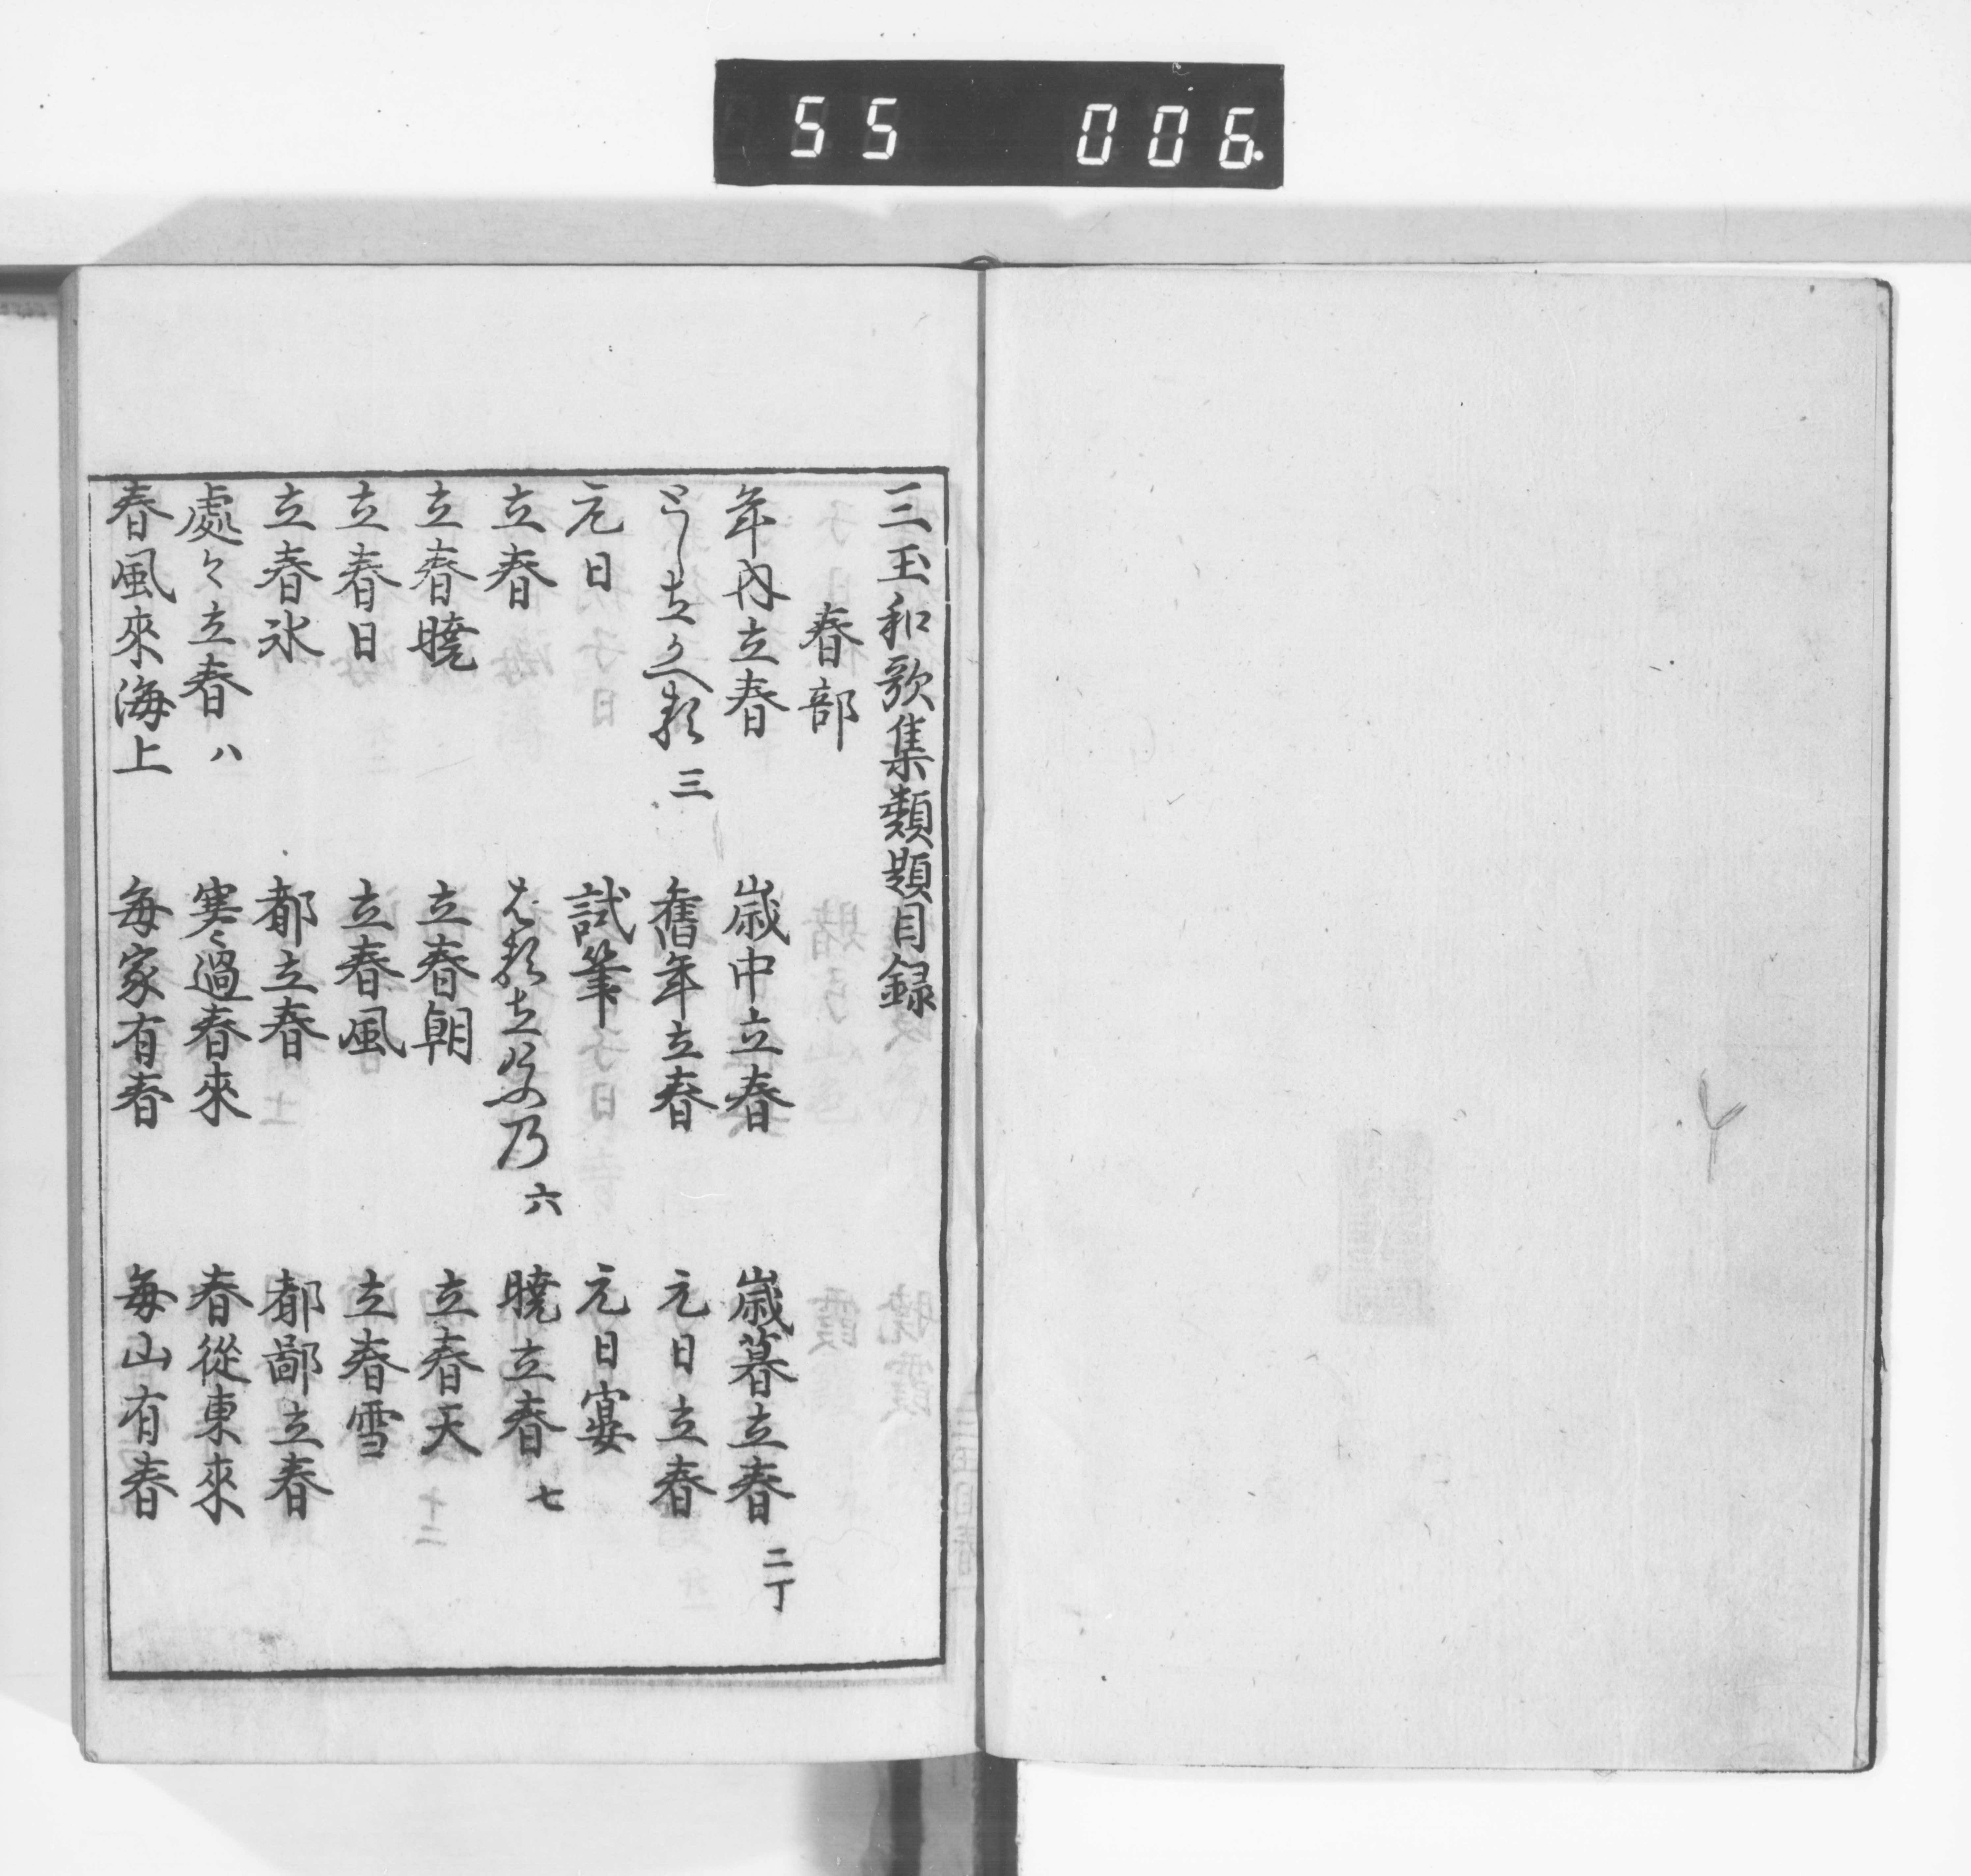 55 006
三玉和歌集類題目録
春部
年内立春 歳中立春 歳暮立春 二丁
とし立かへる 三 舊年立春 元日立春
元日 試筆 元日宴
立春 はる立けふ乃 六 曉立春 七
立春曉 立春朝 立春天
立春日 立春風 立春雪
立春氷 都立春 都鄙立春
處々立春 八 寒過春來 春從東來
春風來海上 毎家有春 毎山有春